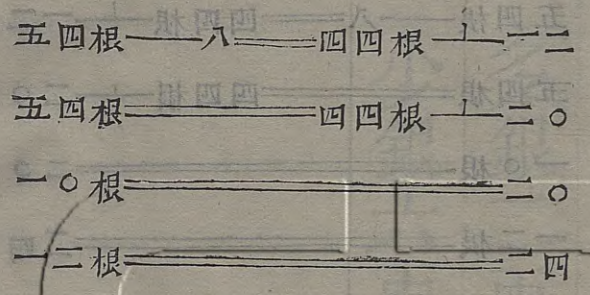 五四根——八====四四根⊥——一二
五四根====四四根⊥——二〇
一〇根====二〇
一二根====二四